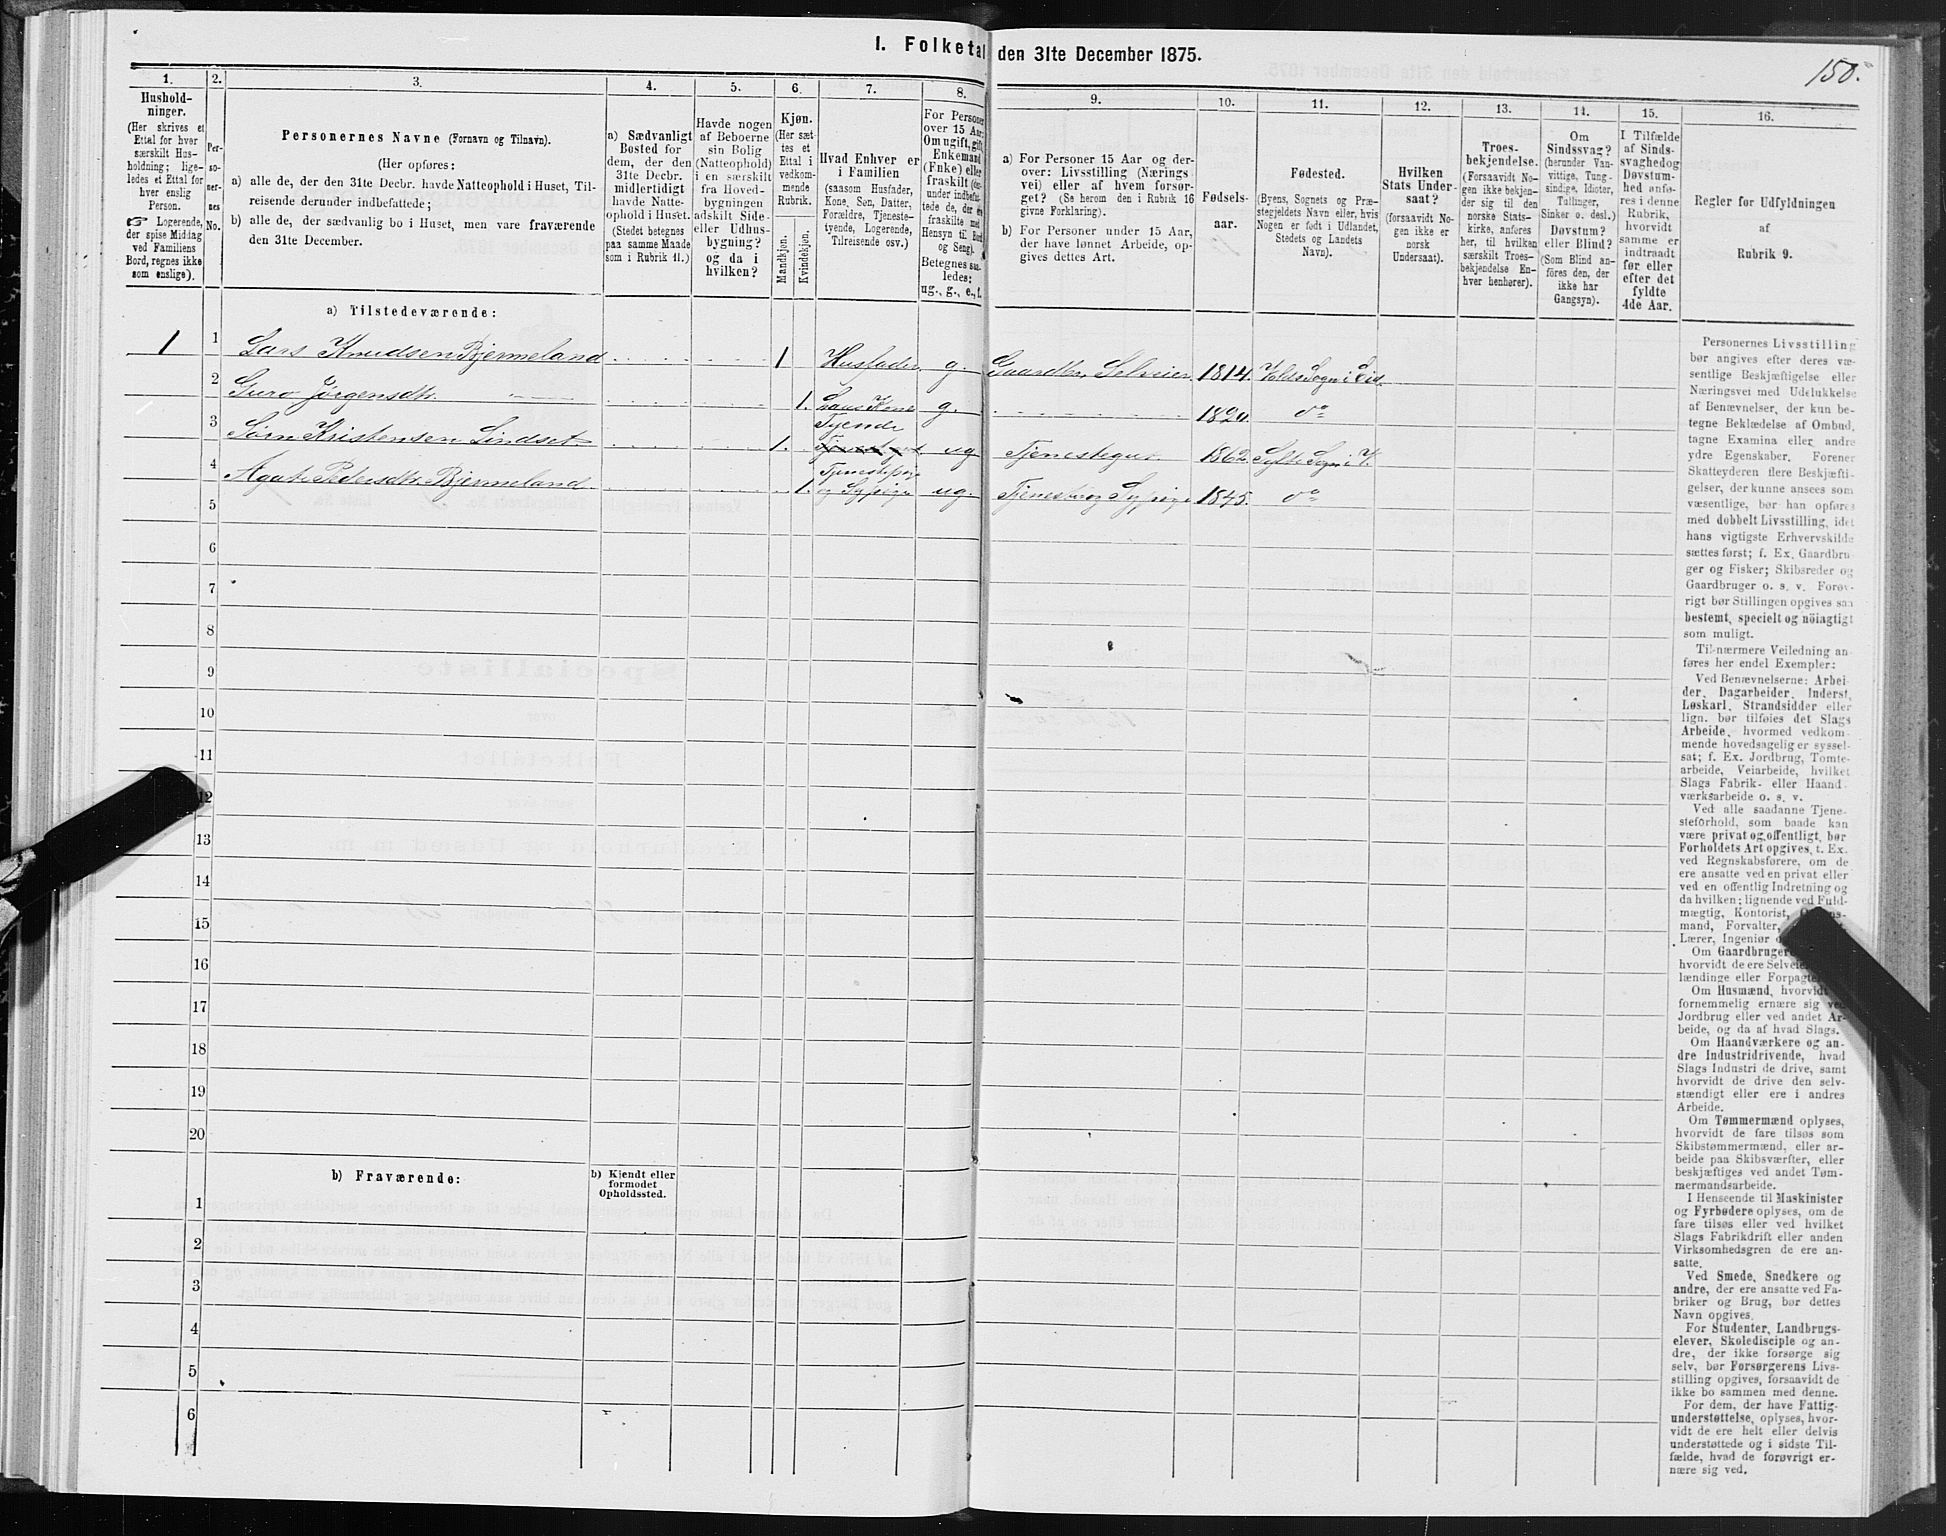 I. Folketal den 31te December 1875.
150.
1. 2. 3. 4. 5. 6. 7. 8. 9. 10. 11. 12. 13. 14. 15. 16.
Hushold-
ninger.
(Her skrives et
Ettal for hver
særskilt Hus-
holdning; lige-
ledes et Ettal for
hver enslig
Person.
☞ Logerende,
der spise Middag
ved Familiens
Bord, regnes ikke
som enslige).
Per-
so-
ner-
nes
No.
Personernes Navne (Fornavn og Tilnavn).
(Her opføres:
a) alle de, der den 31te Decbr. havde Natteophold i Huset, Til-
reisende derunder indbefattede;
b) alle de, der sædvanlig bo i Huset, men vare fraværende
den 31te December.
a) Sædvanligt
Bosted for
dem, der den
31te Decbr.
midlertidigt
havde Natte-
ophold i Huset.
(Stedet betegnes
paa samme Maade
som i Rubrik 11.)
Havde nogen
af Beboerne
sin Bolig
(Natteophold)
i en særskilt
fra Hoved-
bygningen
adskilt Side-
eller Udhus-
bygning?
og da i
hvilken?
Kjøn.
(Her sæt-
tes et
Ettal i
vedkom-
mende
Rubrik.
Mandkjøn.
Kvindekjøn.
Hvad Enhver er
i Familien
(saasom Husfader,
Kone, Søn, Datter,
Forældre, Tjeneste-
tyende, Logerende,
Tilreisende osv.)
For Personer
over 15 Aar:
Om ugift, gift,
Enkemand
(Enke) eller
fraskilt
Hensyn til Bord
og Seng).
Betegnes saa-
ledes:
ug., g., e., f.
a) For Personer 15 Aar og der-
over: Livsstilling (Nærings
vei) eller af hvem forsør-
get? (Se herom den i Rubrik 16
givne Forklaring).
b) For Personer under 15 Aar,
der have lønnet Arbeide, op-
gives dettes Art.
Fødsels-
aar.
Fødested.
(Byens, Sognets og Præ-
stegjeldets Navn eller, hvis
Nogen er født i Udlandet,
Stedets og Landets
Navn).
Hvilken
Stats Under-
saat?
(forsaavidt No-
gen ikke er
norsk
Undersaat).
Troes-
bekjendelse.
(Forsaavidt No-
gen ikke bekjen-
der sig til den
norske Stats-
kirke, anføres
her, til hvilken
særskilt Troes-
bekjendelse En-
hver henhører).
Om
Sindssvag?
(herunder Van-
vittige, Tung-
sindige, Idioter,
Tullinger,
Sinker o. desl.)
Døvstum?
eller Blind?
(Som Blind an-
føres den, der
ikke har
Gangsyn).
I Tilfælde
af Sinds-
svaghed og
Døvstum-
hed anfø-
res i denne
Rubrik,
hvorvidt
samme er
indtraadt
før eller
efter det
fyldte
4de Aar.
Regler for Udfyldningen
af
Rubrik 9.
a) Tilstedeværende:
1 1 Lars Knudsen Bjermeland 1 Husfader g. Gaardbr. Selveier 1814.
2 Guro Jørgensdtr. 1. Hans Kone g. 1820. do
3 Søren Kristensen Lindset 1. Tyende ug Tjenestegut 1862. Sylte Sogn i V.
4 Agate Pedersdtr. Bjermeland 1. Tjenestepige og Sypige ug. Tjenest. og Sypige 1845. do
5
6
7
8
9
10
11
12
13
14
15
16
17
18
19
20
b) Fraværende:
b) Kjendt eller
formodet
Opholdssted.
1
2
3
4
5
6
Personernes Livsstilling
bør angives efter deres væ-
sentlige Beskjæftigelse eller
Næringsvei med Udelukkelse
af Benævnelser, der kun be-
tegne Beklædelse af Ombud,
tagne Examina eller andre
ydre Egenskaber. Forener
Skatteyderen flere Beskjæfti-
gelser, der kunne ansees som
væsentlige, bør han opføres
med dobbelt Livsstilling, idet
hans vigtigste Erhvervskilde
sættes først; f. Ex. Gaardbru-
ger og Fisker; Skibsreder og
Gaardbruger o. s. v. Forøv-
rigt bør Stillingen opgives saa
bestemt, specielt og nöiagtigt
som muligt.
Til nærmere Veiledning an-
føres her endel Exempler:
Ved Benævnelserne: Arbei-
der, Dagarbeider, Inderst,
Løskarl, Strandsidder eller
lign. bør tilføies det Slags
Arbeide, hvormed vedkom-
mende hovedsagelig er syssel-
sat; f. Ex. Jordbrug, Tomte-
arbeide, Veiarbeide, hvilket
Slags Fabrik- eller Haand-
værksarbeide o. s. v.
Ved alle saadanne Tjene-
steforhold, som baade kan
være privat og offentligt, bør
Forholdets Art opgives, f. Ex.
ved Regnskabsførere, om de
ere ansatte ved en privat eller
ved en offentlig Indretning og
da hvilken; lignende ved Fuld-
mægtig, Kontorist,
mand, Forvalter,
Lærer, Ingeniør
Om Gaardbrugere
hvorvidt de ere
lændinge eller
Om Husmænd, hvorvidt
fornemmelig ernære sig ved
Jordbrug eller ved andet Ar-
beide, og da af hvad Slags.
Om Haandværkere og an-
dre Industridrivende, hvad
Slags Industri de drive, samt
hvorvidt de drive den selv-
stændigt eller ere i andres
Arbeide.
Om Tømmermænd oplyses,
hvorvidt de fare tilsøs som
Skibstømmermænd, eller ar-
beide paa Skibsværfter, eller
beskjæftiges ved andet Tøm-
mermandsarbeide.
I Henseende til Maskinister
og Fyrbødere oplyses, om de
fare tilsøs eller ved hvilket
Slags Fabrikdrift eller anden
Virksomhedsgren de ere an-
satte.
Ved Smede, Snedkere og
andre, der ere ansatte ved Fa-
briker og Brug, bør dettes
Navn opgives.
For Studenter, Landbrugs-
elever, Skoledisciple og an-
dre, der ikke forsørge sig
selv, bør Forsørgerens Livs-
stilling opgives, forsaavidt de
ikke bo sammen med denne.
For dem, der have Fattig-
understøttelse, oplyses, hvor-
vidt de ere helt eller delvis
understøttede og i sidste Til-
fælde, hvad de forøvrigt er-
nære sig ved.